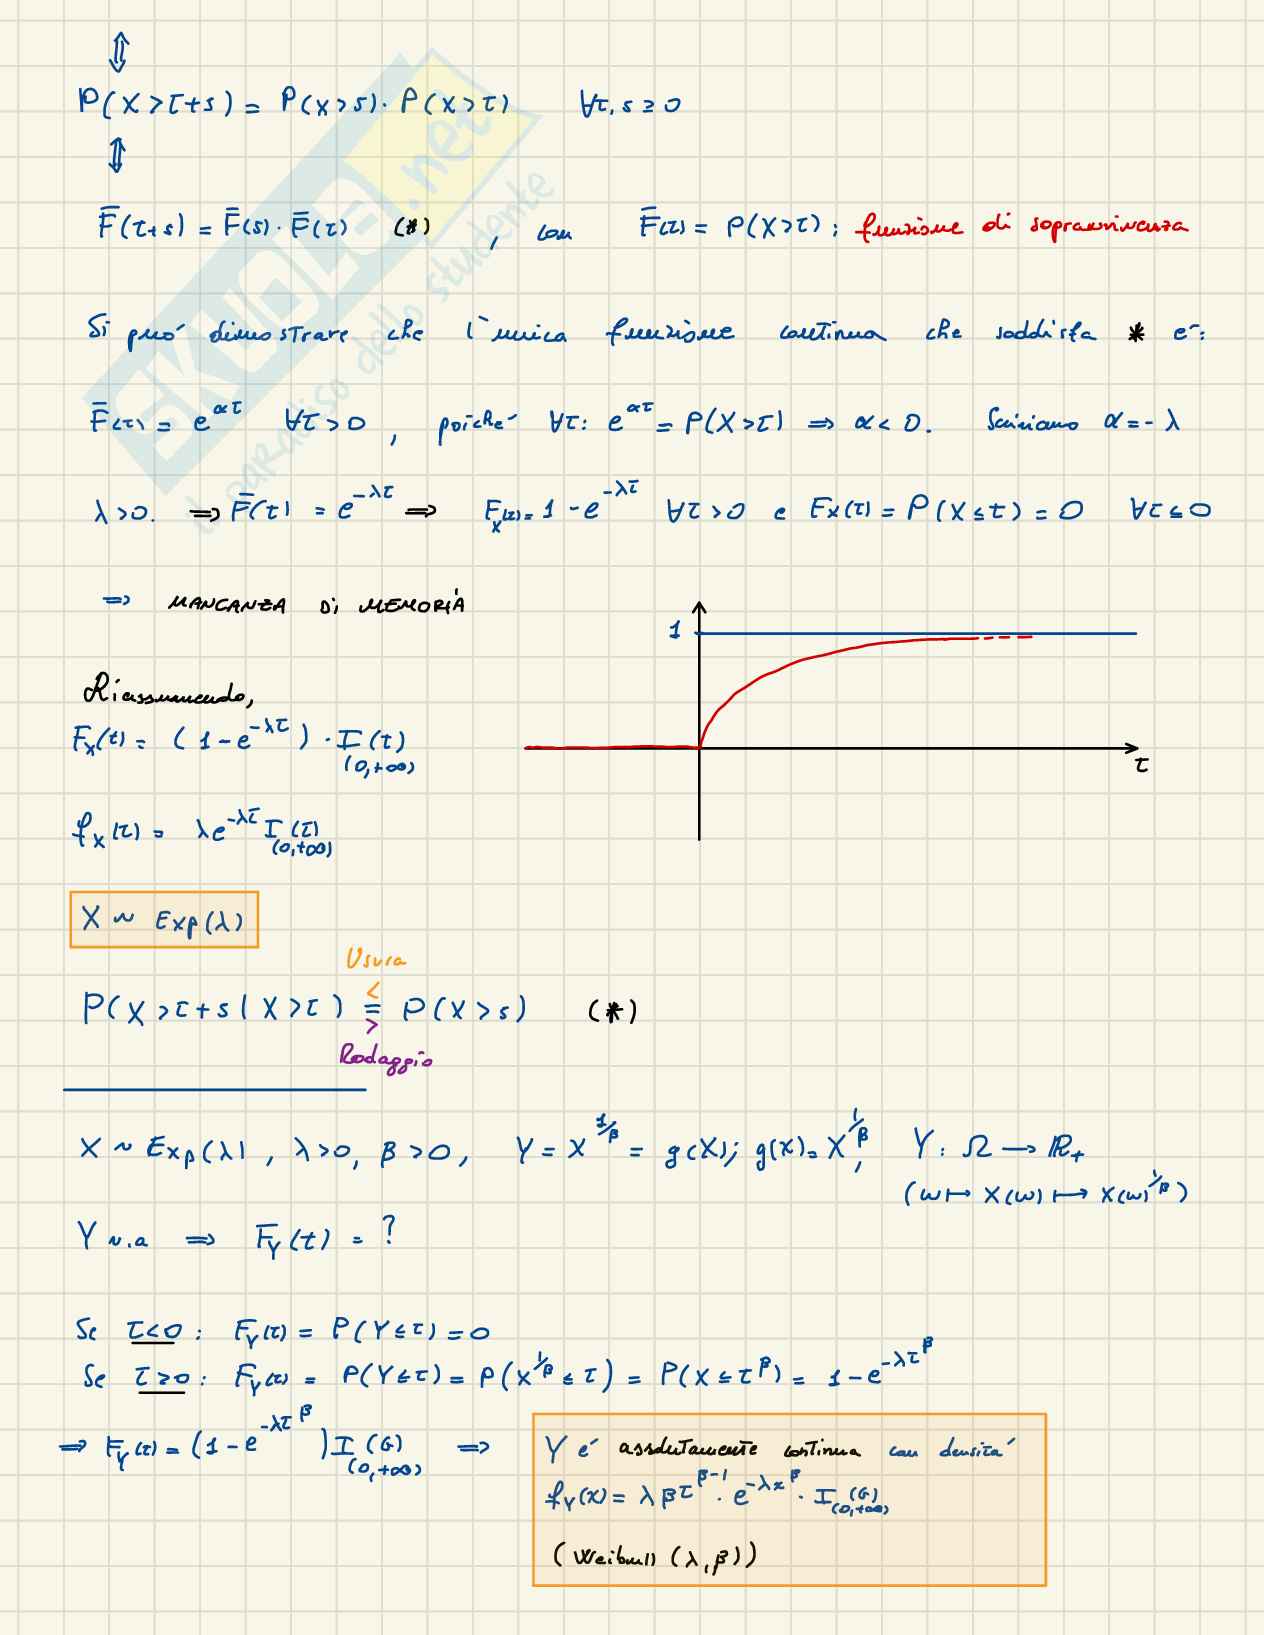 ⇕
P(X>τ+s) = P(X>s)·P(X>τ) ∀τ,s≥0
⇕
F̄(τ+s) = F̄(s)·F̄(τ) (*) , con F̄(τ) = P(X>τ); funzione di sopravvivenza
Si può dimostrare che l'unica funzione continua che soddisfa * è:
F̄(τ) = e^{ατ} ∀τ>0 , poiché ∀τ: e^{ατ} = P(X>τ) ⇒ α<0. Scriviamo α=-λ
λ>0. ⇒ F̄(τ) = e^{-λτ} ⇒ F_X(τ) = 1-e^{-λτ} ∀τ>0 e F_X(τ) = P(X≤τ) = 0 ∀τ≤0
⇒ MANCANZA Di MEMORIA
1
τ
Riassumendo,
F_X(t) = (1-e^{-λτ})·I(τ)
(0,+∞)
f_X(τ) = λe^{-λτ} I(τ)
(0,+∞)
X ~ Exp(λ)
Usura
<
P(X>τ+s | X>τ) = P(X>s) (*)
>
Rodaggio
X ~ Exp(λ), λ>0, β>0, Y = X^{1/β} = g(X); g(x) = X^{1/β}, Y: Ω → ℝ₊
(ω ↦ X(ω) ↦ X(ω)^{1/β})
Y v.a ⇒ F_Y(t) = ?
Se τ<0: F_Y(τ) = P(Y≤τ) = 0
Se τ≥0: F_Y(τ) = P(Y≤τ) = P(X^{1/β}≤τ) = P(X≤τ^β) = 1-e^{-λτ^β}
⇒ F_Y(τ) = (1-e^{-λτ^β}) I(G) ⇒
(0,+∞)
Y é assolutamente continua con densitá
f_Y(x) = λβτ^{β-1}·e^{-λx^β}·I(G)
(0,+∞)
(Weibull (λ,β))
SKUOLA.net
il paradiso dello studente